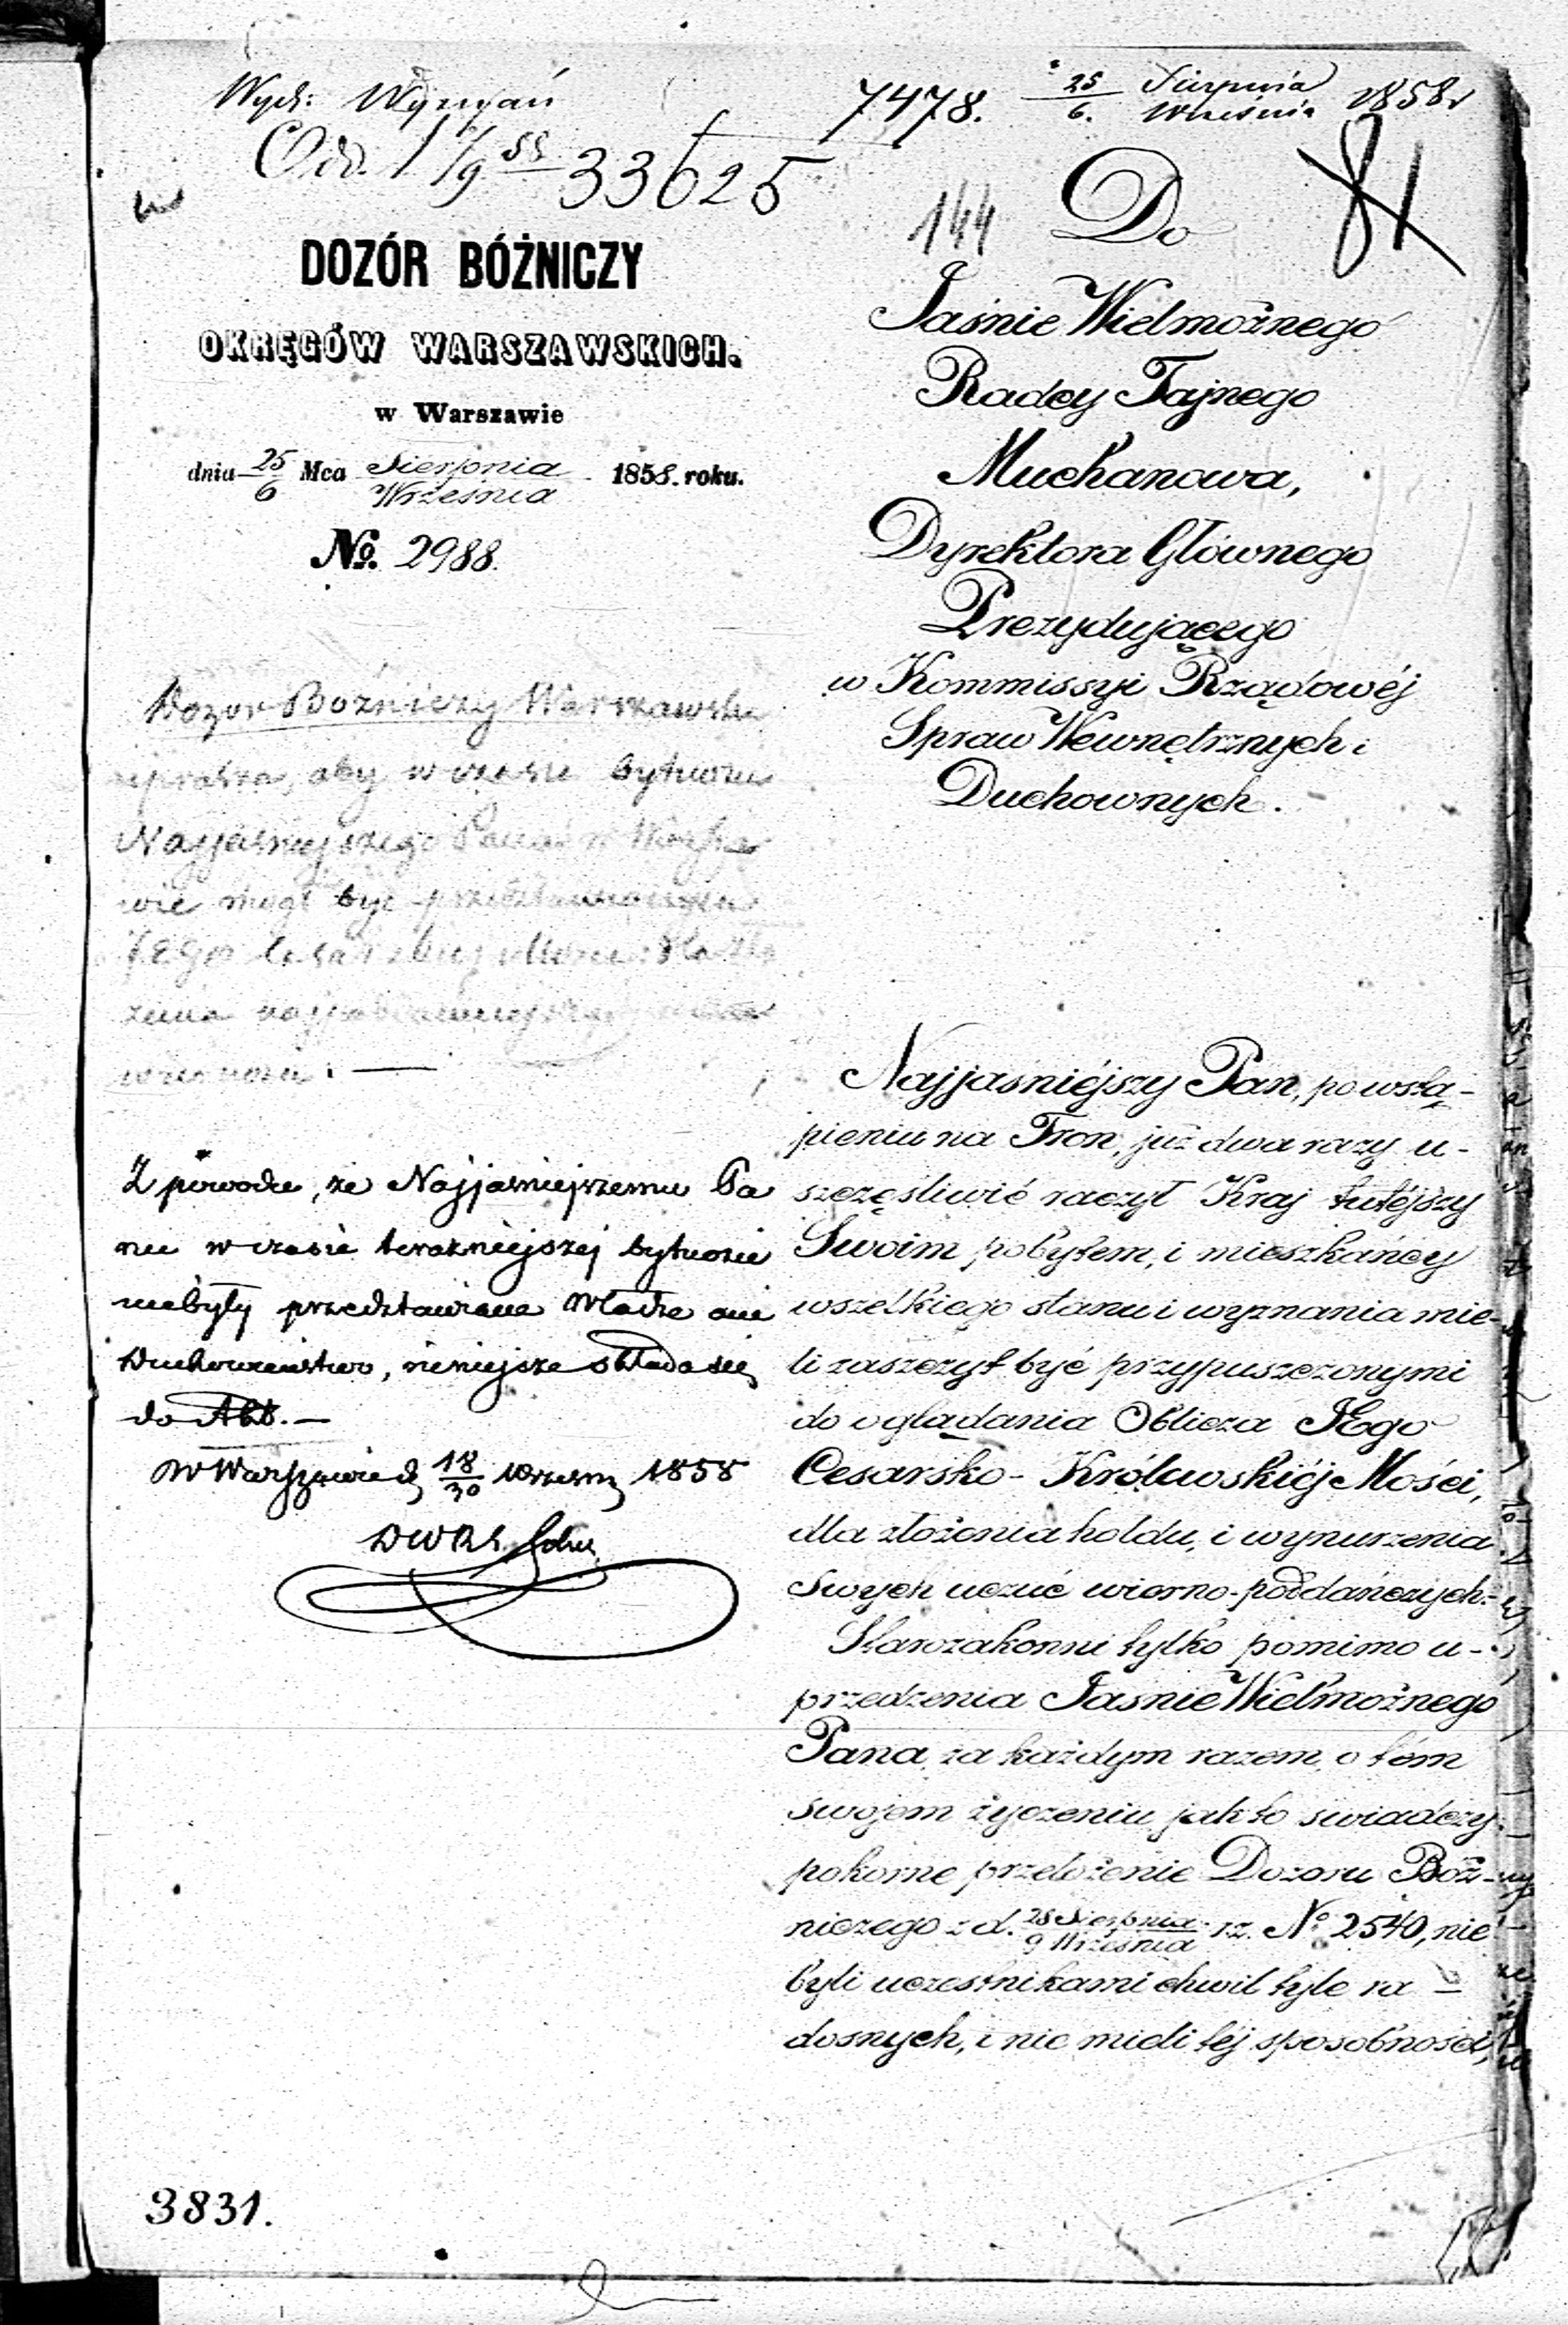 Wych: Wyznań
7478. 25/6. Sierpnia/Września 1858 r
Odd. 1 1/9 58 33625
144
81
DOZÓR BÓŻNICZY
OKRĘGÓW WARSZAWSKICH.
w Warszawie
dnia 25/6 Mca Sierpnia/Września 1858. roku.
No. 2988.
Dozor Bożniczy Warszawski
uprasza, aby w czasie bytności
Najjaśniejszego Pana w Warsza
wie mógł być
JEGO
Z powodu, że Najjaśniejszemu Pa
nu w czasie teraźniejszej bytności
niebyły przedstawiane Władze ani
Duchowieństwo, niniejsze składa się
do Akt. —
W Warszawie d 18/30 Wrześn 1858
3831.
Do
Jaśnie Wielmożnego
Radcy Tajnego
Muchanowa,
Dyrektora Głównego
Prezydującego
w Kommissyi Rządowéj
Spraw Wewnętrznych i
Duchownych.
Najjaśniéjszy Pan, po wstą-
pieniu na Tron, już dwa razy u-
szczęśliwić raczył Kraj tutéjszy
Swoim pobytem, i mieszkańcy
wszelkiego stanu i wyznania mie-
li zaszczyt być przypuszczonymi
do oglądania Oblicza JEgo
Cesarsko-Królewskiéj Mości,
dla złożenia hołdu, i wynurzenia
Swych uczuć wierno-poddańczych.-
Starozakonni tylko pomimo u-
przedzenia Jaśnie Wielmożnego
Pana, za każdym razem, o tém
swojem życzeniu jak to świadczy
pokorne przełożenie Dozoru Boż-
niczego z d. 28 Sierpnia/9 Września r.z. No 2540, nie
byli uczestnikami chwil tyle ra-
dosnych, i nie mieli téj sposobności,